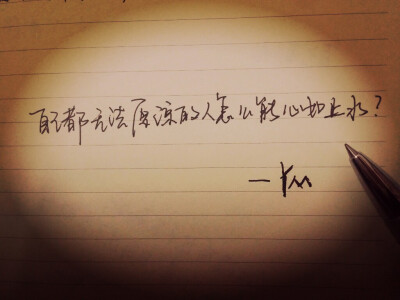 自己都无法原谅的人怎么能心如止水?